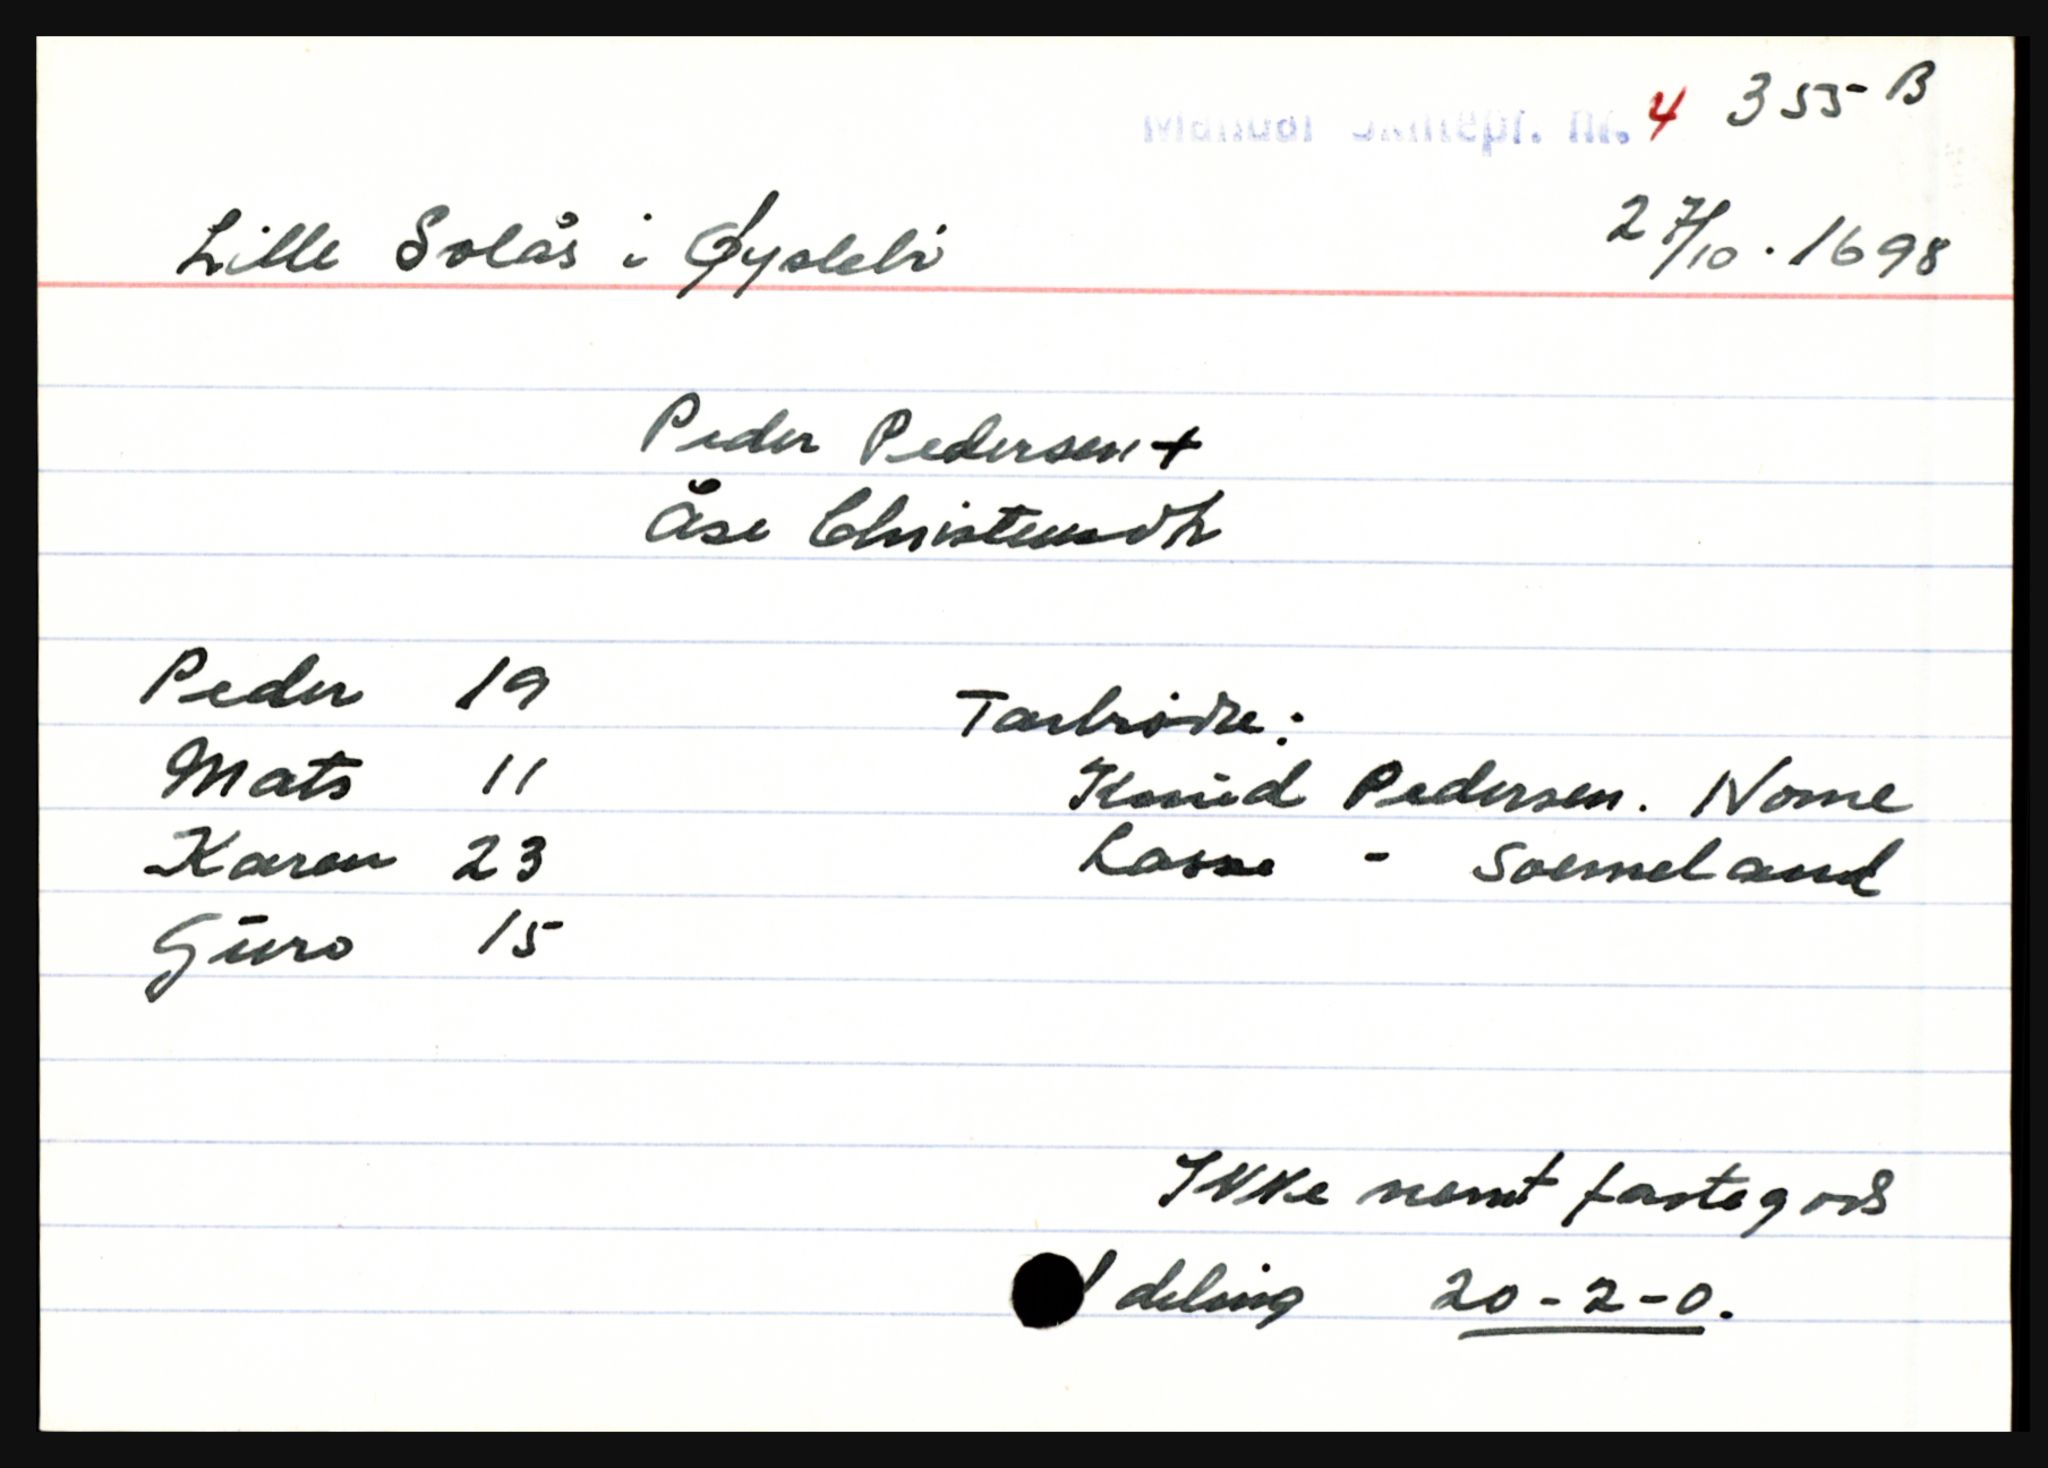 Mandal Skiftpr. nr. 4 355 B
Lille Solås i Øyslebø 27/10. 1698
Peder Pedersen +
Åse Christensdtr
Peder 19
Mats 11
Karen 23
Guro 15
Farbrødre:
Knud Pedersen. Nome
Lasse - Soemeland
Ikke nevnt fastegods
I deling 20-2-0.